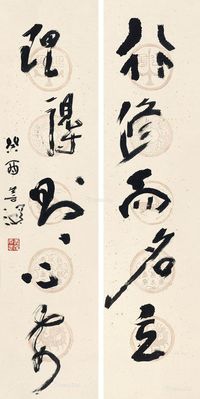 行修而名立
理得则心安
癸酉